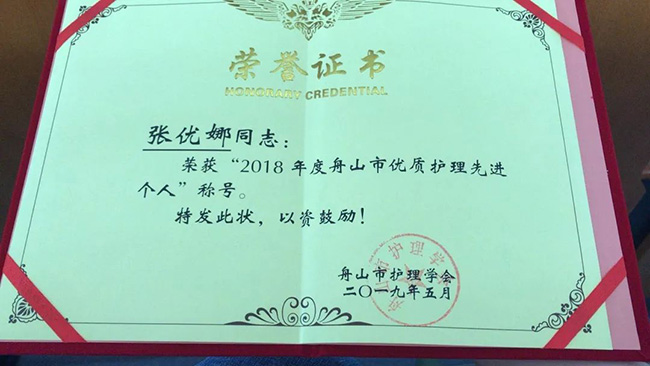 荣誉证书
HONORARY CREDENTIAL
张优娜同志：
荣获“2018年度舟山市优质护理先进
个人”称号。
特发此状，以资鼓励！
舟山市护理学会
二〇一九年五月